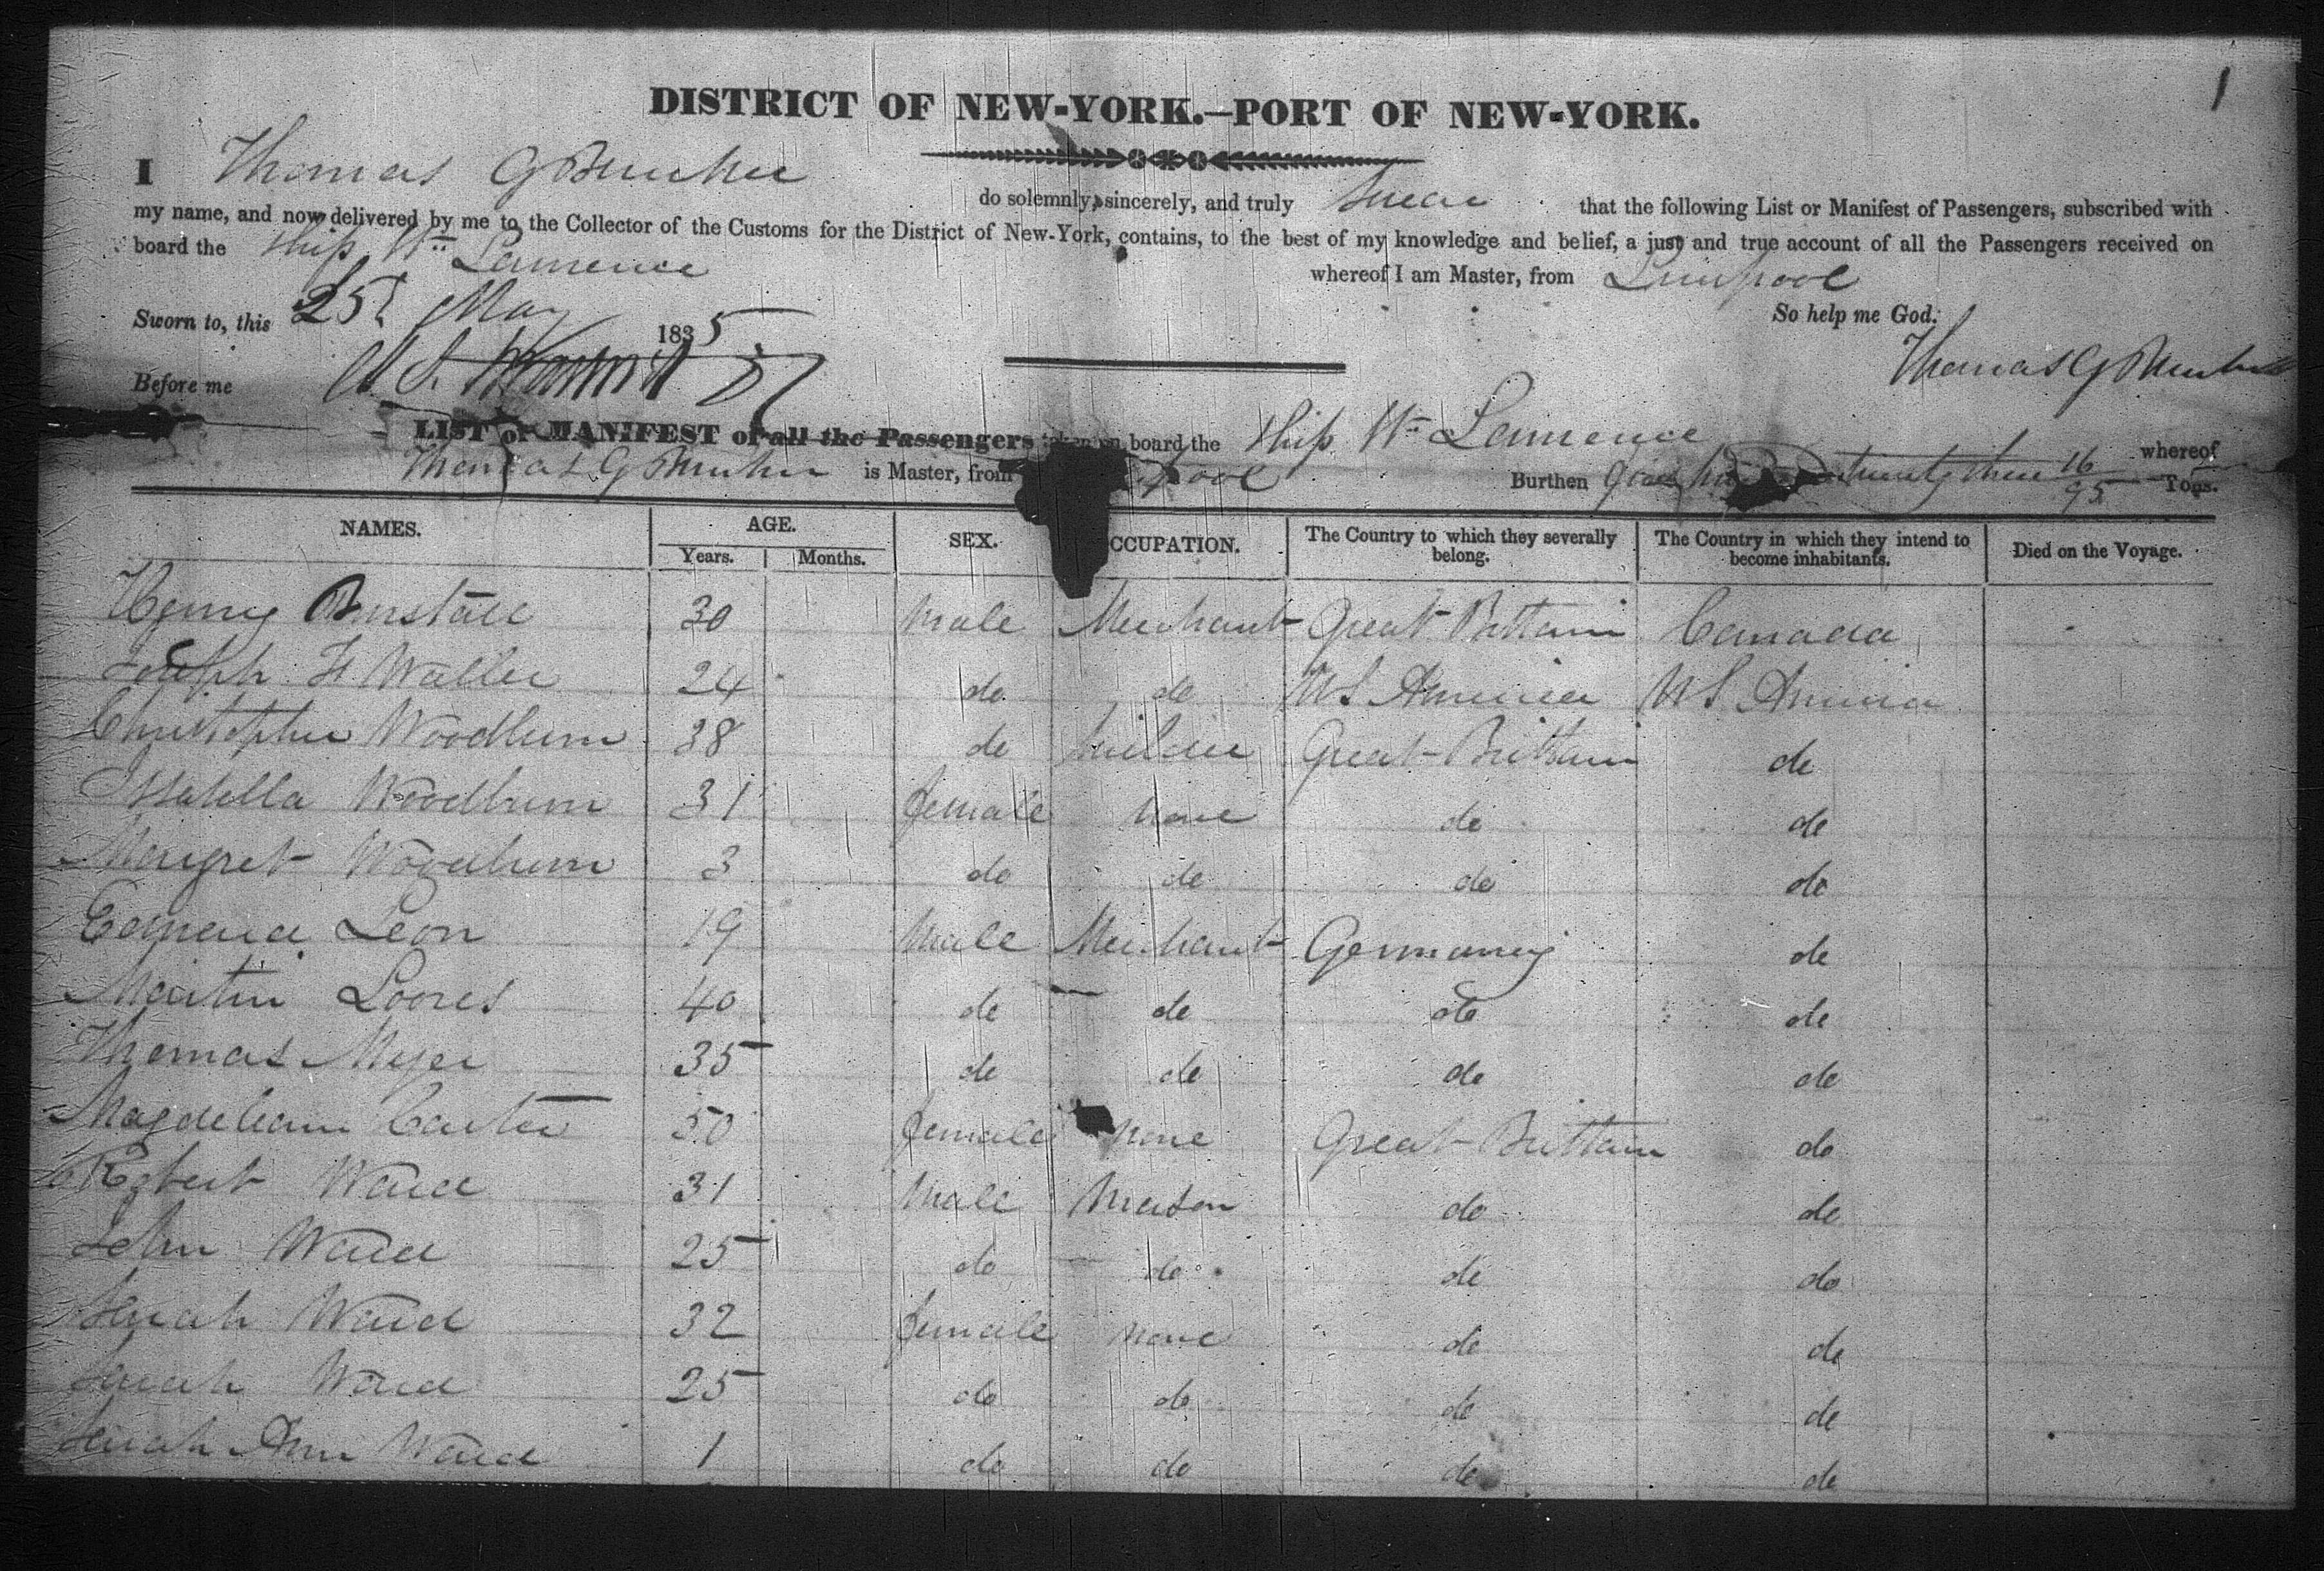 1
DISTRICT OF NEW-YORK.—PORT OF NEW-YORK.
I Thomas G do solemnly, sincerely, and truly Swear that the following List or Manifest of Passengers, subscribed with
my name, and now delivered by me to the Collector of the Customs for the District of New-York, contains, to the best of my knowledge and belief, a just and true account of all the Passengers received on
board the Ship Wm Lawrence whereof I am Master, from Liverpool
So help me God.
Sworn to, this 25 May 1835
Thomas G
Before me
LIST or MANIFEST of all the Passengers taken on board the Ship Wm Lawrence whereof
Thomas G is Master, from pool Burthen twenty three 16/95 Tons.
NAMES. AGE. SEX. CCUPATION. The Country to which they severally belong. The Country in which they intend to become inhabitants. Died on the Voyage.
Years. Months.
Henry Burstall 30 Male Merchant Great Brittain Canada
Joseph H Waller 24 do do US America US America
Christopher Woodburn 38 do Great Brittain do
Issabella Woodburn 31 female None do do
Margret Woodburn 3 do do do do
Leon 19 Male Merchant Germany do
Martin 40 do do do do
Thomas Meyer 35 do do do do
Carter 50 female None Great Brittain do
Robert Ward 31 Male Mason do do
John Ward 25 do do do do
Sarah Ward 32 female None do do
Sarah Ward 25 do do do do
Sarah Ann Ward 1 do do do do